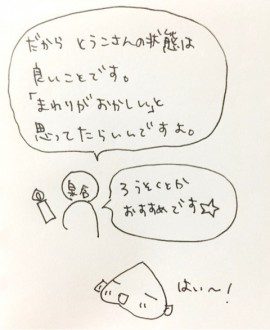 だから とうこさんの状態は
良いことです。
「まわりがおかしい」と
思ってたらいいんですよ。
ろうそくとか
おすすめです☆
はい〜!